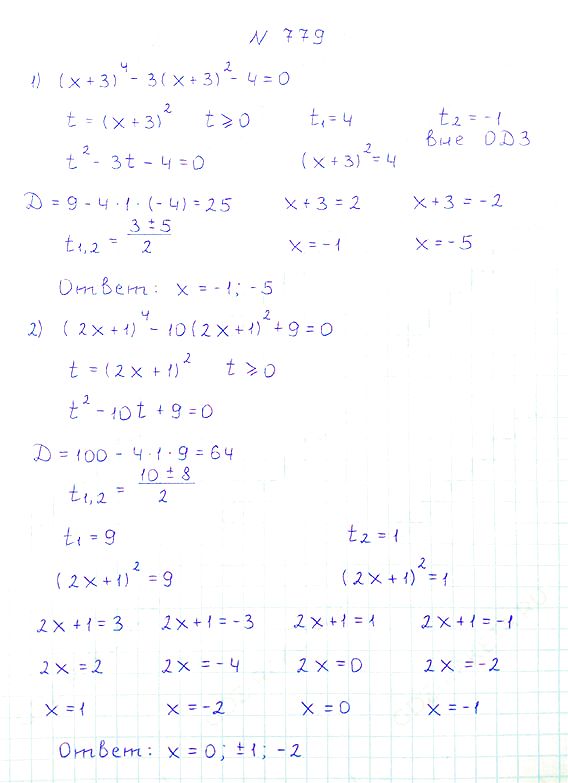 N 779
1) (x+3)⁴ - 3(x+3)² - 4 = 0
t = (x+3)² t ⩾ 0 t₁ = 4 t₂ = -1
вне ОДЗ
t² - 3t - 4 = 0 (x+3)² = 4
D = 9 - 4·1·(-4) = 25 x+3 = 2 x+3 = -2
t₁,₂ = (3 ± 5)/2 x = -1 x = -5
Ответ: x = -1; -5
2) (2x+1)⁴ - 10(2x+1)² + 9 = 0
t = (2x+1)² t ⩾ 0
t² - 10t + 9 = 0
D = 100 - 4·1·9 = 64
t₁,₂ = (10 ± 8)/2
t₁ = 9 t₂ = 1
(2x+1)² = 9 (2x+1)² = 1
2x+1 = 3 2x+1 = -3 2x+1 = 1 2x+1 = -1
2x = 2 2x = -4 2x = 0 2x = -2
x = 1 x = -2 x = 0 x = -1
Ответ: x = 0; ±1; -2